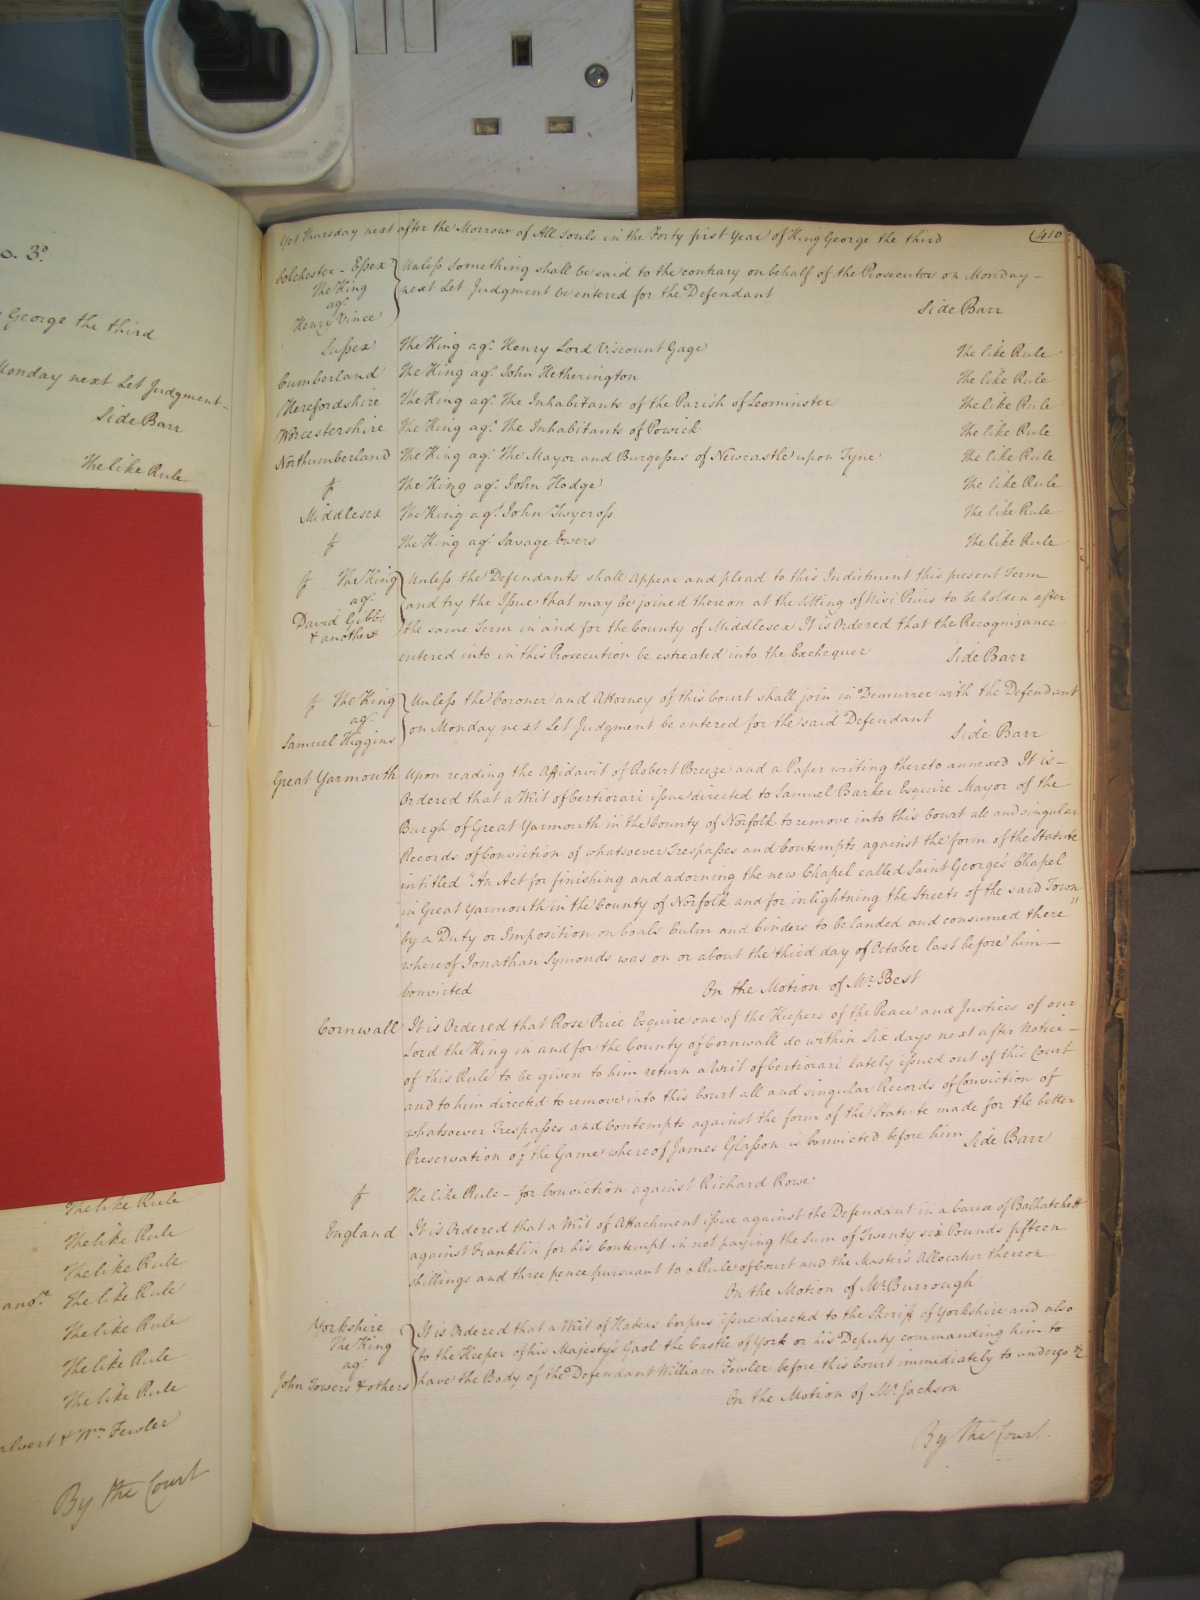 o. 3d.
George the third
Monday next Let Judgment
Side Barr
The like Rule
The like Rule
The like Rule
The like Rule
anor. The like Rule
The like Rule
The like Rule
The like Rule
alvert & Wm. Fewler
By the Court
Yet Thursday next after the Morrow of All Souls in the Forty first Year of King George the third 410
Colchester - Essex Unless something shall be said to the contrary on behalf of the Prosecutor on Monday
The King next Let Judgment be entered for the Defendant
agt. Side Barr
Henry Vince
Sussex The King agt. Henry Lord Viscount Gage The like Rule
Cumberland The King agt. John Hetherington The like Rule
Herefordshire The King agt. The Inhabitants of the Parish of Leominster The like Rule
Worcestershire The King agt. The Inhabitants of Powick The like Rule
Northumberland The King agt. The Mayor and Burgesses of Newcastle upon Tyne The like Rule
The King agt. John Hodge The like Rule
Middlesex The King agt. John Twycross The like Rule
The King agt. Savage Ewers The like Rule
The King Unless the Defendants shall Appear and plead to this Indictment this present Term
agt. and try the Issue that may be joined thereon at the Sitting of Nisi Prius to be holden after
David Gibbs the same Term in and for the County of Middlesex It is Ordered that the Recognizance
& another entered into in this Prosecution be estreated into the Exchequer Side Barr
The King Unless the Coroner and Attorney of this Court shall join in Demurrer with the Defendant
agt. on Monday next Let Judgment be entered for the said Defendant
Samuel Higgins Side Barr
Great Yarmouth Upon reading the Affidavit of Robert Breeze and a Paper writing thereto annexed It is
Ordered that a Writ of Certiorari issue directed to Samuel Barker Esquire Mayor of the
Burgh of Great Yarmouth in the County of Norfolk to remove into this Court all and singular
Records of Conviction of whatsoever Trespasses and Contempts against the form of the Statute
intitled "An Act for finishing and adorning the new Chapel called Saint George's Chapel
"in Great Yarmouth in the County of Norfolk and for inlightning the Streets of the said Town
"by a Duty or Imposition on Coals Culm and Cinders to be landed and consumed there"
whereof Jonathan Symonds was on or about the third day of October last before him
Convicted On the Motion of Mr. Best
Cornwall It is Ordered that Rose Price Esquire one of the Keepers of the Peace and Justices of our
Lord the King in and for the County of Cornwall do within Six days next after Notice
of this Rule to be given to him return a Writ of Certiorari lately issued out of this Court
and to him directed to remove into this Court all and singular Records of Conviction of
whatsoever Trespasses and Contempts against the form of the Statute made for the better
Preservation of the Game whereof James Glasson is Convicted before him Side Barr
The like Rule - for Conviction against Richard Rowe
England It is Ordered that a Writ of Attachment issue against the Defendant in a Cause of Balhatchett
against Franklin for his Contempt in not paying the Sum of Twenty six Pounds fifteen
shillings and three pence pursuant to a Rule of Court and the Master's Allocatur thereon
On the Motion of Mr. Burrough
Yorkshire It is Ordered that a Writ of Habeas Corpus issue directed to the Sheriff of Yorkshire and also
The King to the Keeper of his Majesty's Gaol the Castle of York or his Deputy commanding him to
agt. have the Body of the Defendant William Fewler before this Court immediately to undergo &c
John Towers & others On the Motion of Mr. Jackson
By the Court